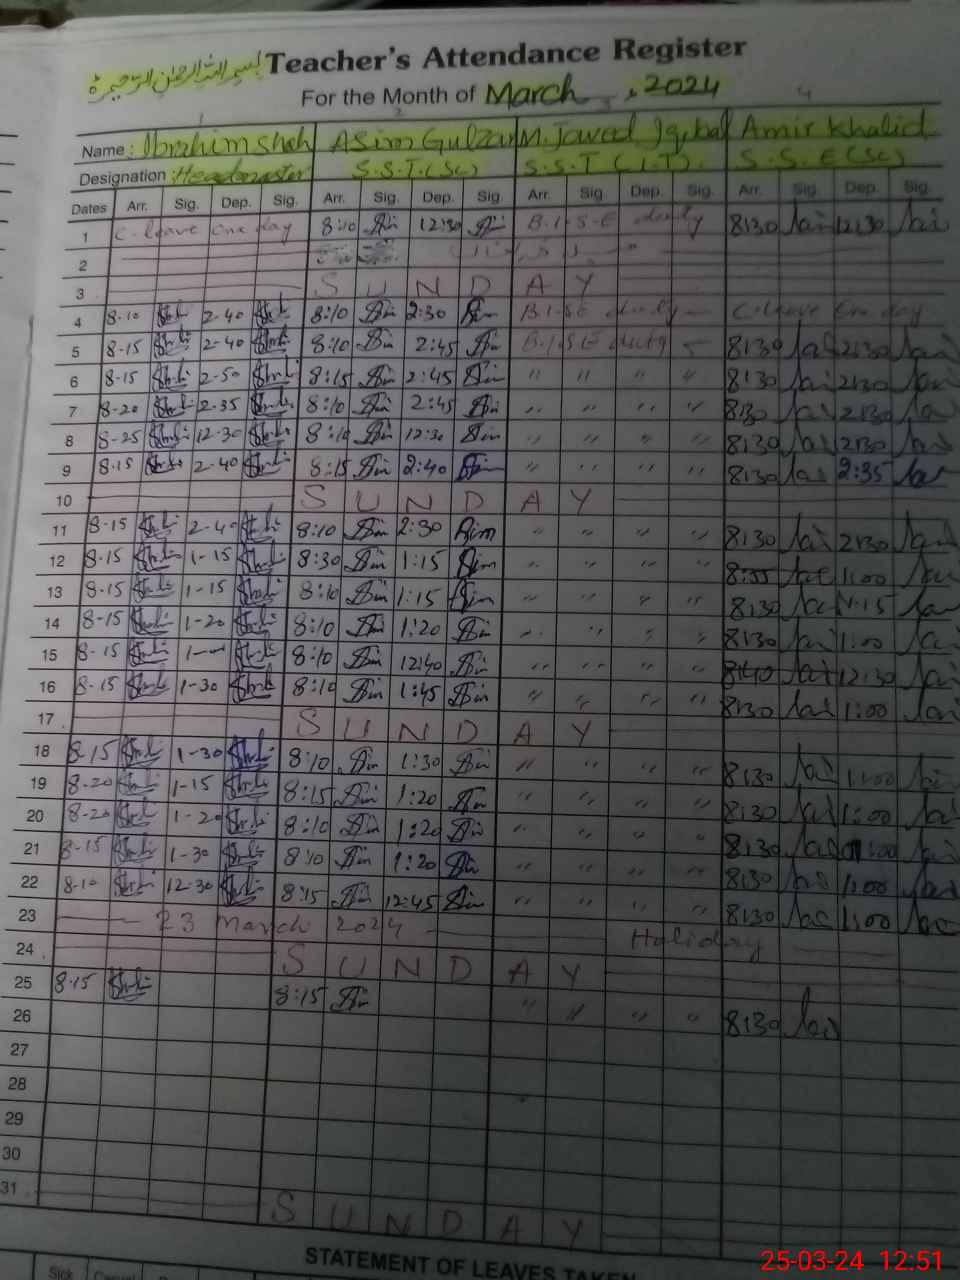 بسم اللہ الرحمن الرحیم Teacher's Attendance Register
For the Month of March, 2024
1 2 3 4
Name: Ibrahim shah Asim Gulzar M. Javed Iqbal Amir Khalid
Designation: Headmaster S.S.T.(Sc) S.S.T (I.T). S.S.E (Sc)
Dates Arr. Sig. Dep. Sig. Arr. Sig. Dep. Sig. Arr. Sig. Dep. Sig. Arr. Sig. Dep. Sig.
1 C-leave One day 8:10 12:30 B.I.S.E duty 8:30 12:30
2
3 S U N D A Y
4 8-10 2-40 8:10 2:30 B.I.S.E duty C-leave One day
5 8-15 2-40 8:10 2:45 B.I.S.E duty 8:30 2:30
6 8-15 2-50 8:15 2:45 " " " " 8:30 2:30
7 8-20 2-35 8:10 2:45 " " " " 8:30 2:30
8 8-25 12-30 8:10 12:30 " " " " 8:30 2:30
9 8-15 2-40 8:15 2:40 " " " " 8:30 2:35
10 S U N D A Y
11 8-15 2-40 8:10 2:30 " " " " 8:30 2:30
12 8-15 1-15 8:30 1:15 " " " " 8:55 1:00
13 8-15 1-15 8:10 1:15 " " " " 8:30 1:15
14 8-15 1-20 8:10 1:20 " " " " 8:30 1:00
15 8-15 8:10 12:40 " " " " 8:40 12:30
16 8-15 1-30 8:10 1:45 " " " " 8:30 1:00
17 S U N D A Y
18 8-15 1-30 8:10 1:30 " " " " 8:30 1:00
19 8-20 1-15 8:15 1:20 " " " " 8:30 1:00
20 8-20 1-20 8:10 1:20 " " " " 8:30
21 8-15 1-30 8:10 1:20 " " " " 8:30 1:00
22 8-10 12-30 8:15 12:45 " " " " 8:30 1:00
23 23 March 2024 Holiday
24 S U N D A Y
25 8-15 8:15 " " " " 8:30
26
27
28
29
30
31 S U N D A Y
STATEMENT OF LEAVES TAKEN
Sick Casual
25-03-24 12:51